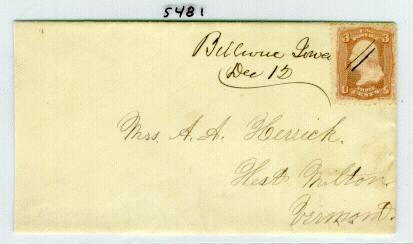 5481
Bellevue Iowa
Dec 12
3 3
U S
THREE CENTS
Mrs. A. A. Herrick.
West Milton
Vermont.